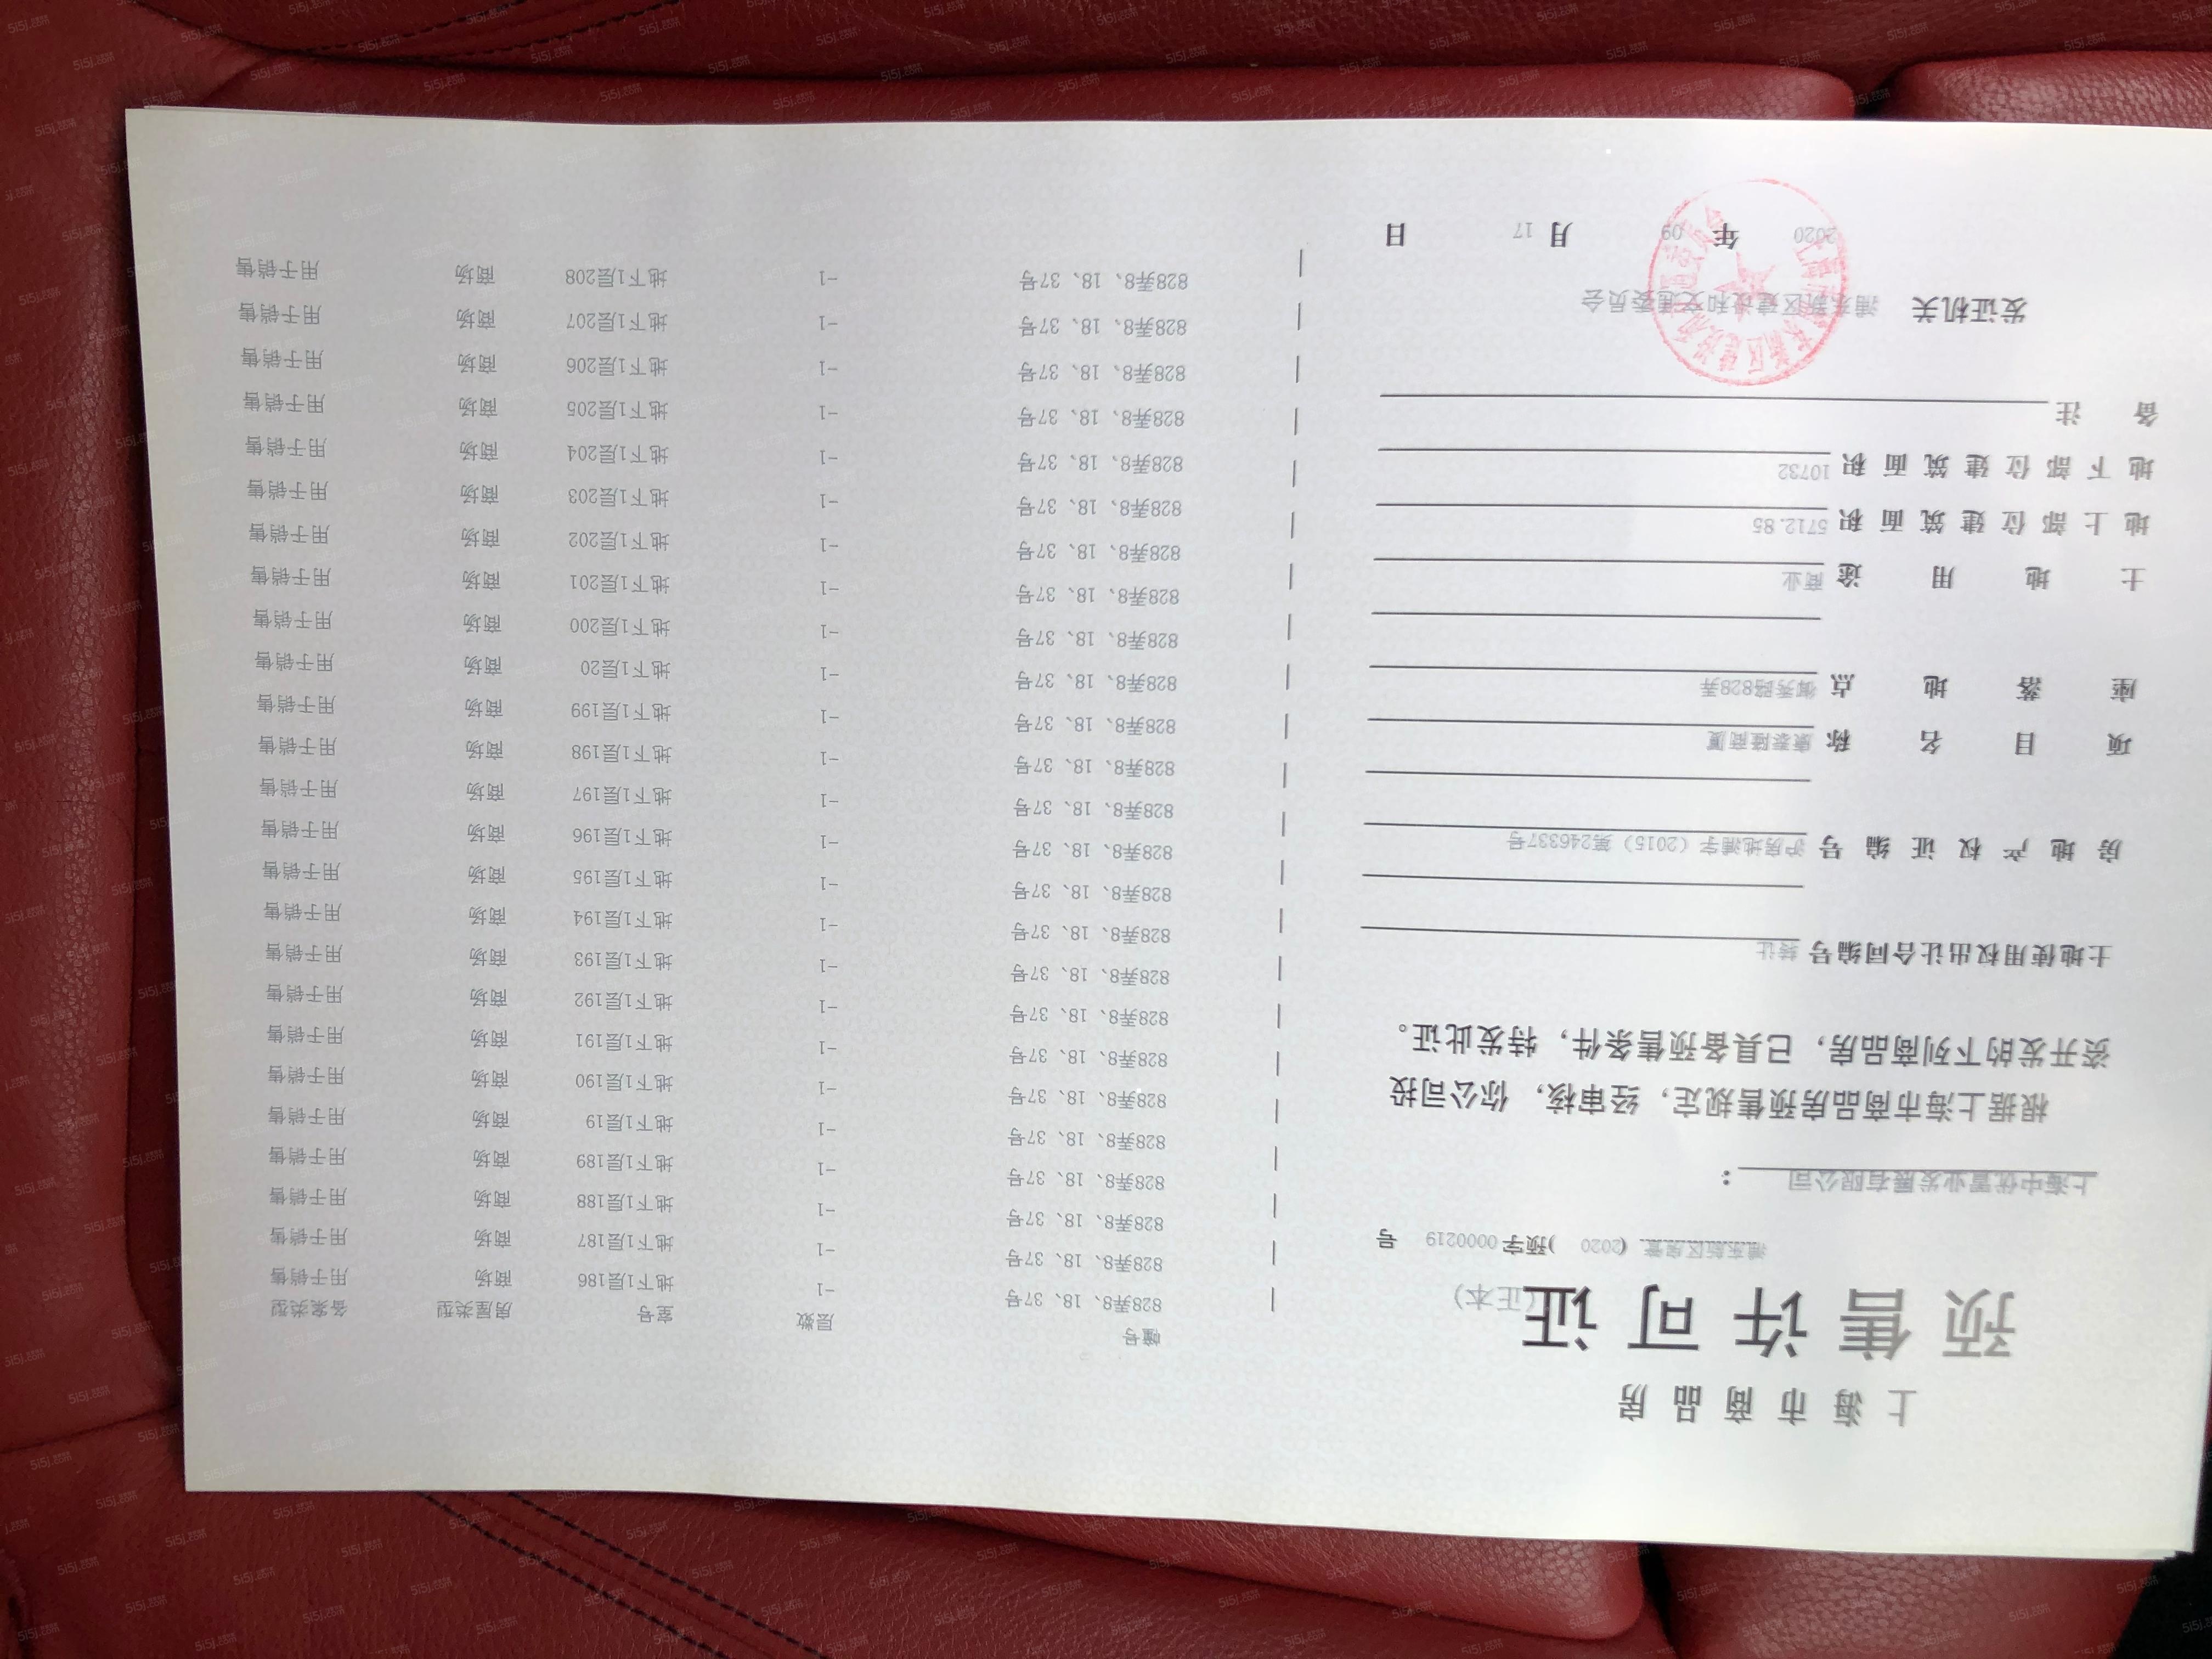 上海市商品房
预售许可证(正本)
浦东新区房管(2020)预字0000219号
上海中优置业发展有限公司：
根据上海市商品房预售规定，经审核，你公司投
资开发的下列商品房，已具备预售条件，特发此证。
土地使用权出让合同编号 转让
房地产权证编号 沪房地浦字（2015）第246337号
项目名称 康泰隆商厦
座落地点 御秀路828弄
土地用途 商业
地上部位建筑面积 5712.85
地下部位建筑面积 10732
备注
发证机关 浦东新区建设和交通委员会
2020年09月17日
幢号 层数 室号 房屋类型 备案类型
828弄8、18、37号 -1 地下1层186 商场 用于销售
828弄8、18、37号 -1 地下1层187 商场 用于销售
828弄8、18、37号 -1 地下1层188 商场 用于销售
828弄8、18、37号 -1 地下1层189 商场 用于销售
828弄8、18、37号 -1 地下1层19 商场 用于销售
828弄8、18、37号 -1 地下1层190 商场 用于销售
828弄8、18、37号 -1 地下1层191 商场 用于销售
828弄8、18、37号 -1 地下1层192 商场 用于销售
828弄8、18、37号 -1 地下1层193 商场 用于销售
828弄8、18、37号 -1 地下1层194 商场 用于销售
828弄8、18、37号 -1 地下1层195 商场 用于销售
828弄8、18、37号 -1 地下1层196 商场 用于销售
828弄8、18、37号 -1 地下1层197 商场 用于销售
828弄8、18、37号 -1 地下1层198 商场 用于销售
828弄8、18、37号 -1 地下1层199 商场 用于销售
828弄8、18、37号 -1 地下1层20 商场 用于销售
828弄8、18、37号 -1 地下1层200 商场 用于销售
828弄8、18、37号 -1 地下1层201 商场 用于销售
828弄8、18、37号 -1 地下1层202 商场 用于销售
828弄8、18、37号 -1 地下1层203 商场 用于销售
828弄8、18、37号 -1 地下1层204 商场 用于销售
828弄8、18、37号 -1 地下1层205 商场 用于销售
828弄8、18、37号 -1 地下1层206 商场 用于销售
828弄8、18、37号 -1 地下1层207 商场 用于销售
828弄8、18、37号 -1 地下1层208 商场 用于销售